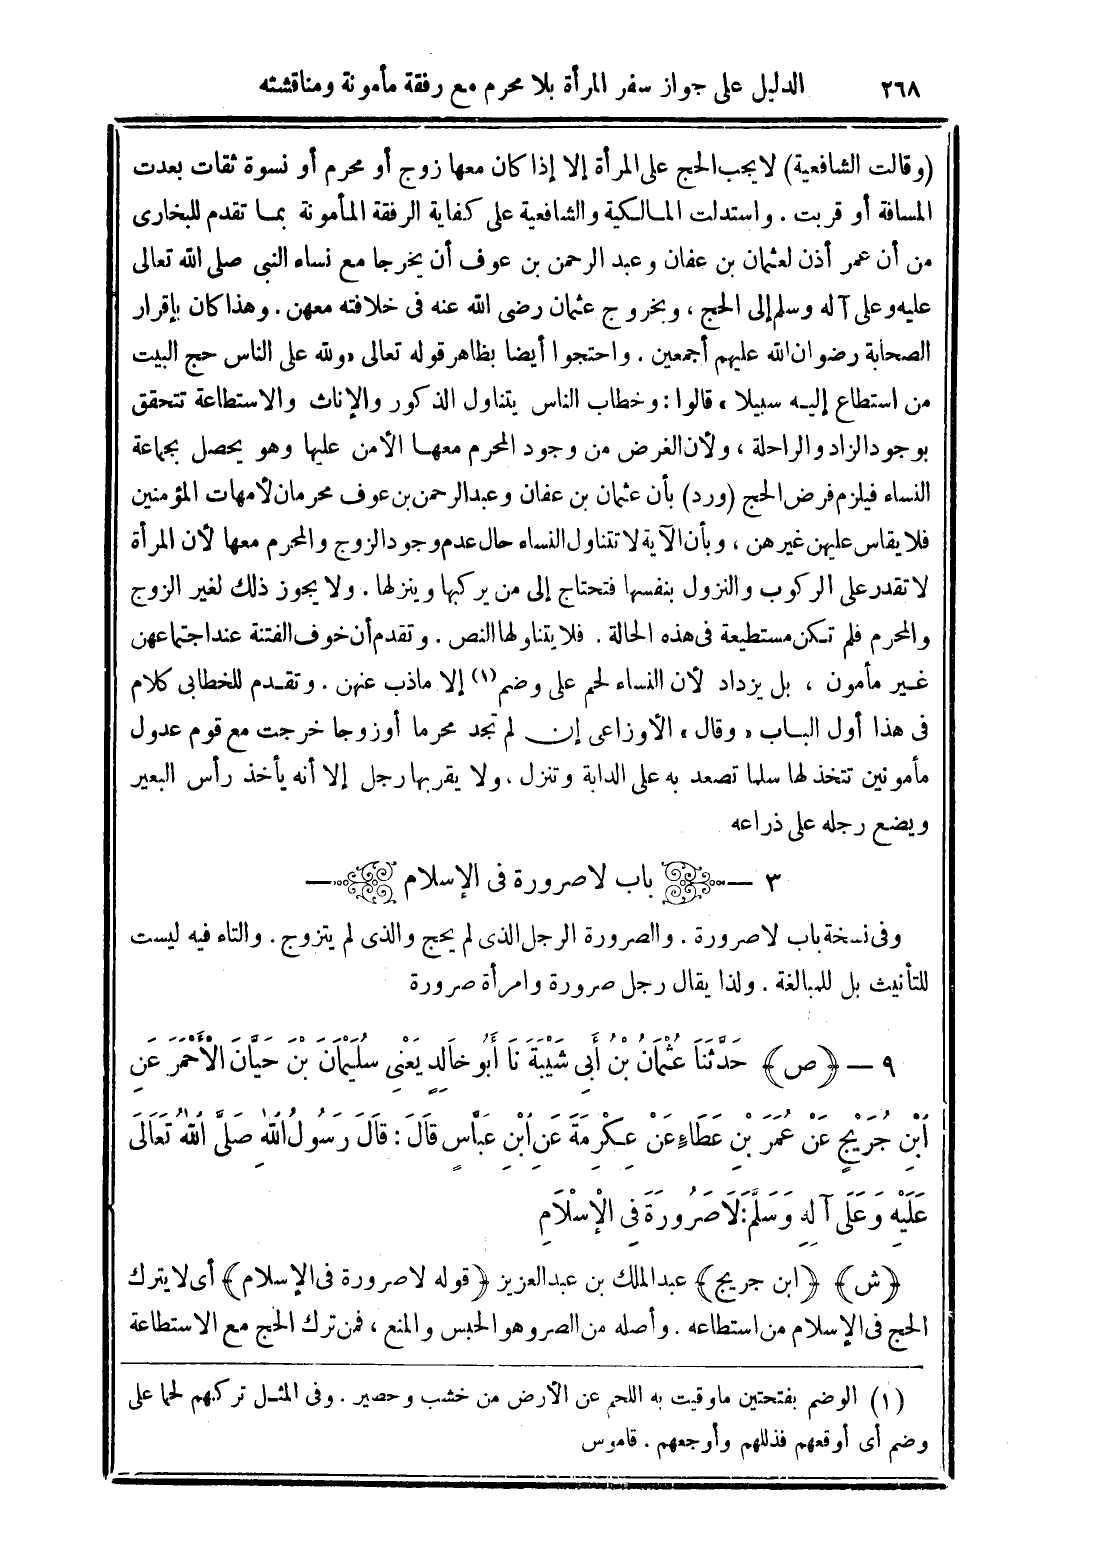 ٢٦٨ الدليل على جواز سفر المرأة بلا محرم مع رفقة مأمونة ومناقشته
(وقالت الشافعية) لايجب الحج على المرأة إلا إذا كان معها زوج أو محرم أو نسوة ثقات بعدت
المسافة أو قربت . واستدلت المالكية والشافعية على كفاية الرفقة المأمونة بما تقدم للبخارى
من أن عمر أذن لعثمان بن عفان وعبد الرحمن بن عوف أن يخرجا مع نساء النبى صلى الله تعالى
عليه وعلى آله وسلم إلى الحج ، وبخروج عثمان رضى الله عنه فى خلافته معهن . وهذا كان بإقرار
الصحابة رضوان الله عليهم أجمعين . واحتجوا أيضا بظاهر قوله تعالى «ولله على الناس حج البيت
من استطاع إليه سبيلا » قالوا : وخطاب الناس يتناول الذكور والإناث والاستطاعة تتحقق
بوجود الزاد والراحلة ، ولأن الغرض من وجود المحرم معها الأمن عليها وهو يحصل بجماعة
النساء فيلزم فرض الحج (ورد) بأن عثمان بن عفان وعبدالرحمن بن عوف محرمان لأمهات المؤمنين
فلا يقاس عليهن غيرهن ، وبأن الآية لا تتناول النساء حال عدم وجود الزوج والمحرم معها لأن المرأة
لا تقدر على الركوب والنزول بنفسها فتحتاج إلى من يركبها وينزلها . ولا يجوز ذلك لغير الزوج
والمحرم فلم تكن مستطيعة فى هذه الحالة . فلا يتناولها النص . وتقدم أن خوف الفتنة عند اجتماعهن
غير مأمون ، بل يزداد لأن النساء لحم على وضم (١) إلا ماذب عنهن . وتقدم للخطابى كلام
فى هذا أول الباب « وقال » الأوزاعى إن لم تجد محرما أو زوجا خرجت مع قوم عدول
مأمونين تتخذ لها سلما تصعد به على الدابة وتنزل . ولا يقربها رجل إلا أنه يأخذ رأس البعير
ويضع رجله على ذراعه
٣ — باب لا صرورة فى الإسلام —
وفى نسخة باب لاصرورة . والصرورة الرجل الذى لم يحج والذى لم يتزوج . والتاء فيه ليست
للتأنيث بل للمبالغة . ولذا يقال رجل صرورة وامرأة صرورة
٩ — ﴿ص﴾ حَدَّثَنَا عُثْمَانُ بْنُ أَبِي شَيْبَةَ نَا أَبُو خَالِدٍ يَعْنِى سُلَيْمَانَ بْنَ حَيَّانَ الْأَحْمَرَ عَنِ
ابْنِ جُرَيْجٍ عَنْ عُمَرَ بْنِ عَطَاءٍ عَنْ عِكْرِمَةَ عَنِ ابْنِ عَبَّاسٍ قَالَ : قَالَ رَسُولُ اللهِ صَلَّى اللهُ تَعَالَى
عَلَيْهِ وَعَلَى آلِهِ وَسَلَّمَ: لَا صَرُورَةَ فِى الْإِسْلَامِ
﴿ش﴾ ﴿ابن جريج﴾ عبدالملك بن عبدالعزيز ﴿قوله لا صرورة فى الإسلام﴾ أى لا يترك
الحج فى الإسلام من استطاعه . وأصله من الصر وهو الحبس والمنع ، فمن ترك الحج مع الاستطاعة
(١) الوضم بفتحتين ماوقيت به اللحم عن الأرض من خشب وحصير . وفى المثل تركهم لحما على
وضم أى أوقعهم فذللهم وأوجعهم . قاموس